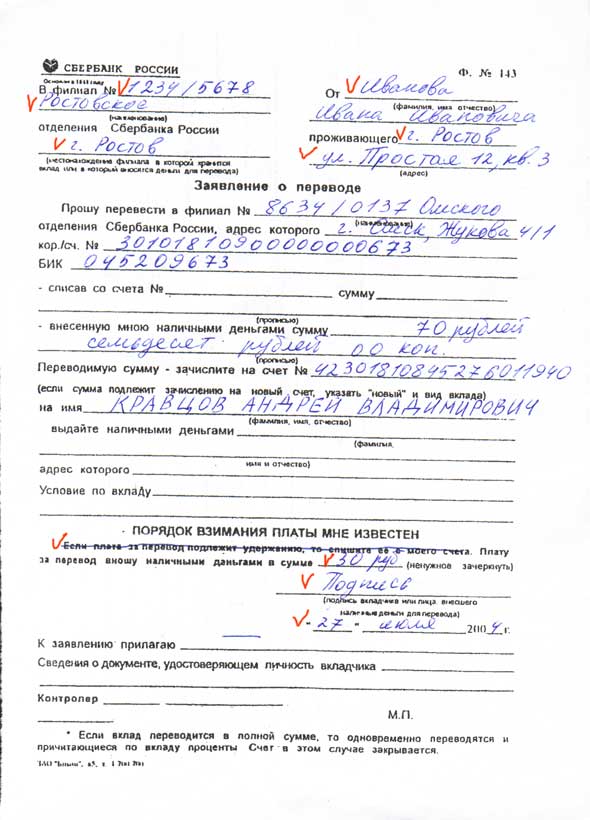 СБЕРБАНК РОССИИ
Ф. № 143
Основан в 1841 году
В филиал № 1234/5678
От Иванова
Ростовское
(фамилия, имя отчество)
(наименование)
Ивана Ивановича
отделения Сбербанка России
проживающего г. Ростов
г. Ростов
ул. Простая 12, кв. 3
(местонахождение филиала в которой хранится
вклад или в который вносятся деньги для перевода)
(адрес)
Заявление о переводе
Прошу перевести в филиал № 8634/0137 Омского
(наименование)
отделения Сбербанка России, адрес которого г. Омск, Жукова 4/1
кор./сч. № 30101810900000000673
БИК 045209673
- списав со счета № сумму
(прописью)
- внесенную мною наличными деньгами сумму 70 рублей
семьдесят рублей 00 коп.
(прописью)
Переводимую сумму - зачислите на счет № 42301810845276011940
(если сумма подлежит зачислению на новый счет, указать "новый" и вид вклада)
на имя КРАВЦОВ АНДРЕЙ ВЛАДИМИРОВИЧ
(фамилия, имя, отчество)
выдайте наличными деньгами
(фамилия,
имя и отчество)
адрес которого
Условие по вкладу
- ПОРЯДОК ВЗИМАНИЯ ПЛАТЫ МНЕ ИЗВЕСТЕН
Если плата за перевод подлежит удержанию, то спишите её с моего счета. Плату
за перевод вношу наличными деньгами в сумме 30 руб (ненужное зачеркнуть)
Подпись
(подпись вкладчика или лица, внесшего
наличные деньги для перевода)
"27" июля 2004 г.
К заявлению прилагаю
Сведения о документе, удостоверяющем личность вкладчика
Контролер
М.П.
* Если вклад переводится в полной сумме, то одновременно переводятся и
причитающиеся по вкладу проценты Счет в этом случае закрывается.